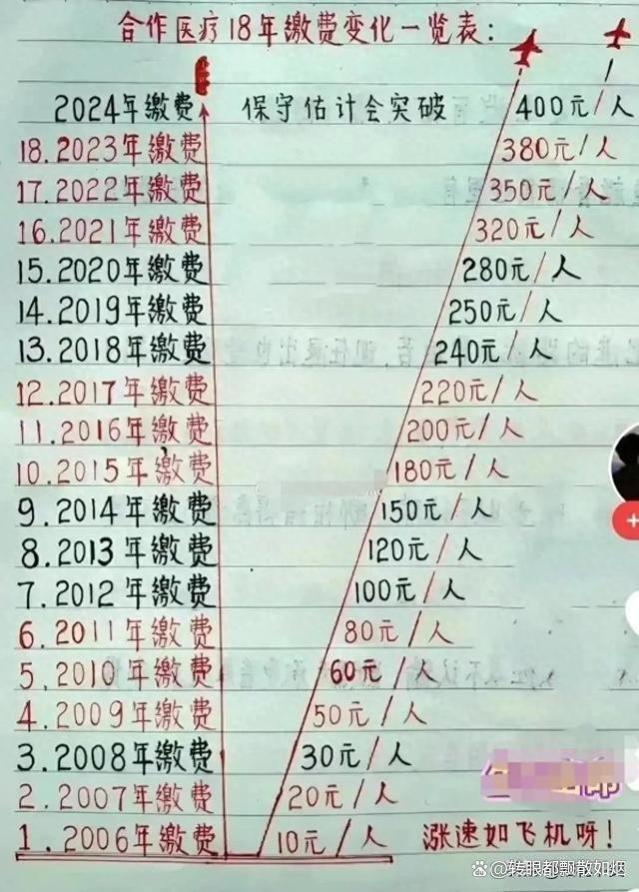 合作医疗18年缴费变化一览表:
2024年缴费 保守估计会突破 400元/人
18.2023年缴费 380元/人
17.2022年缴费 350元/人
16.2021年缴费 320元/人
15.2020年缴费 280元/人
14.2019年缴费 250元/人
13.2018年缴费 240元/人
12.2017年缴费 220元/人
11.2016年缴费 200元/人
10.2015年缴费 180元/人
9.2014年缴费 150元/人
8.2013年缴费 120元/人
7.2012年缴费 100元/人
6.2011年缴费 80元/人
5.2010年缴费 60元/人
4.2009年缴费 50元/人
3.2008年缴费 30元/人
2.2007年缴费 20元/人
1.2006年缴费 10元/人 涨速如飞机呀!
@转眼都飘散如烟